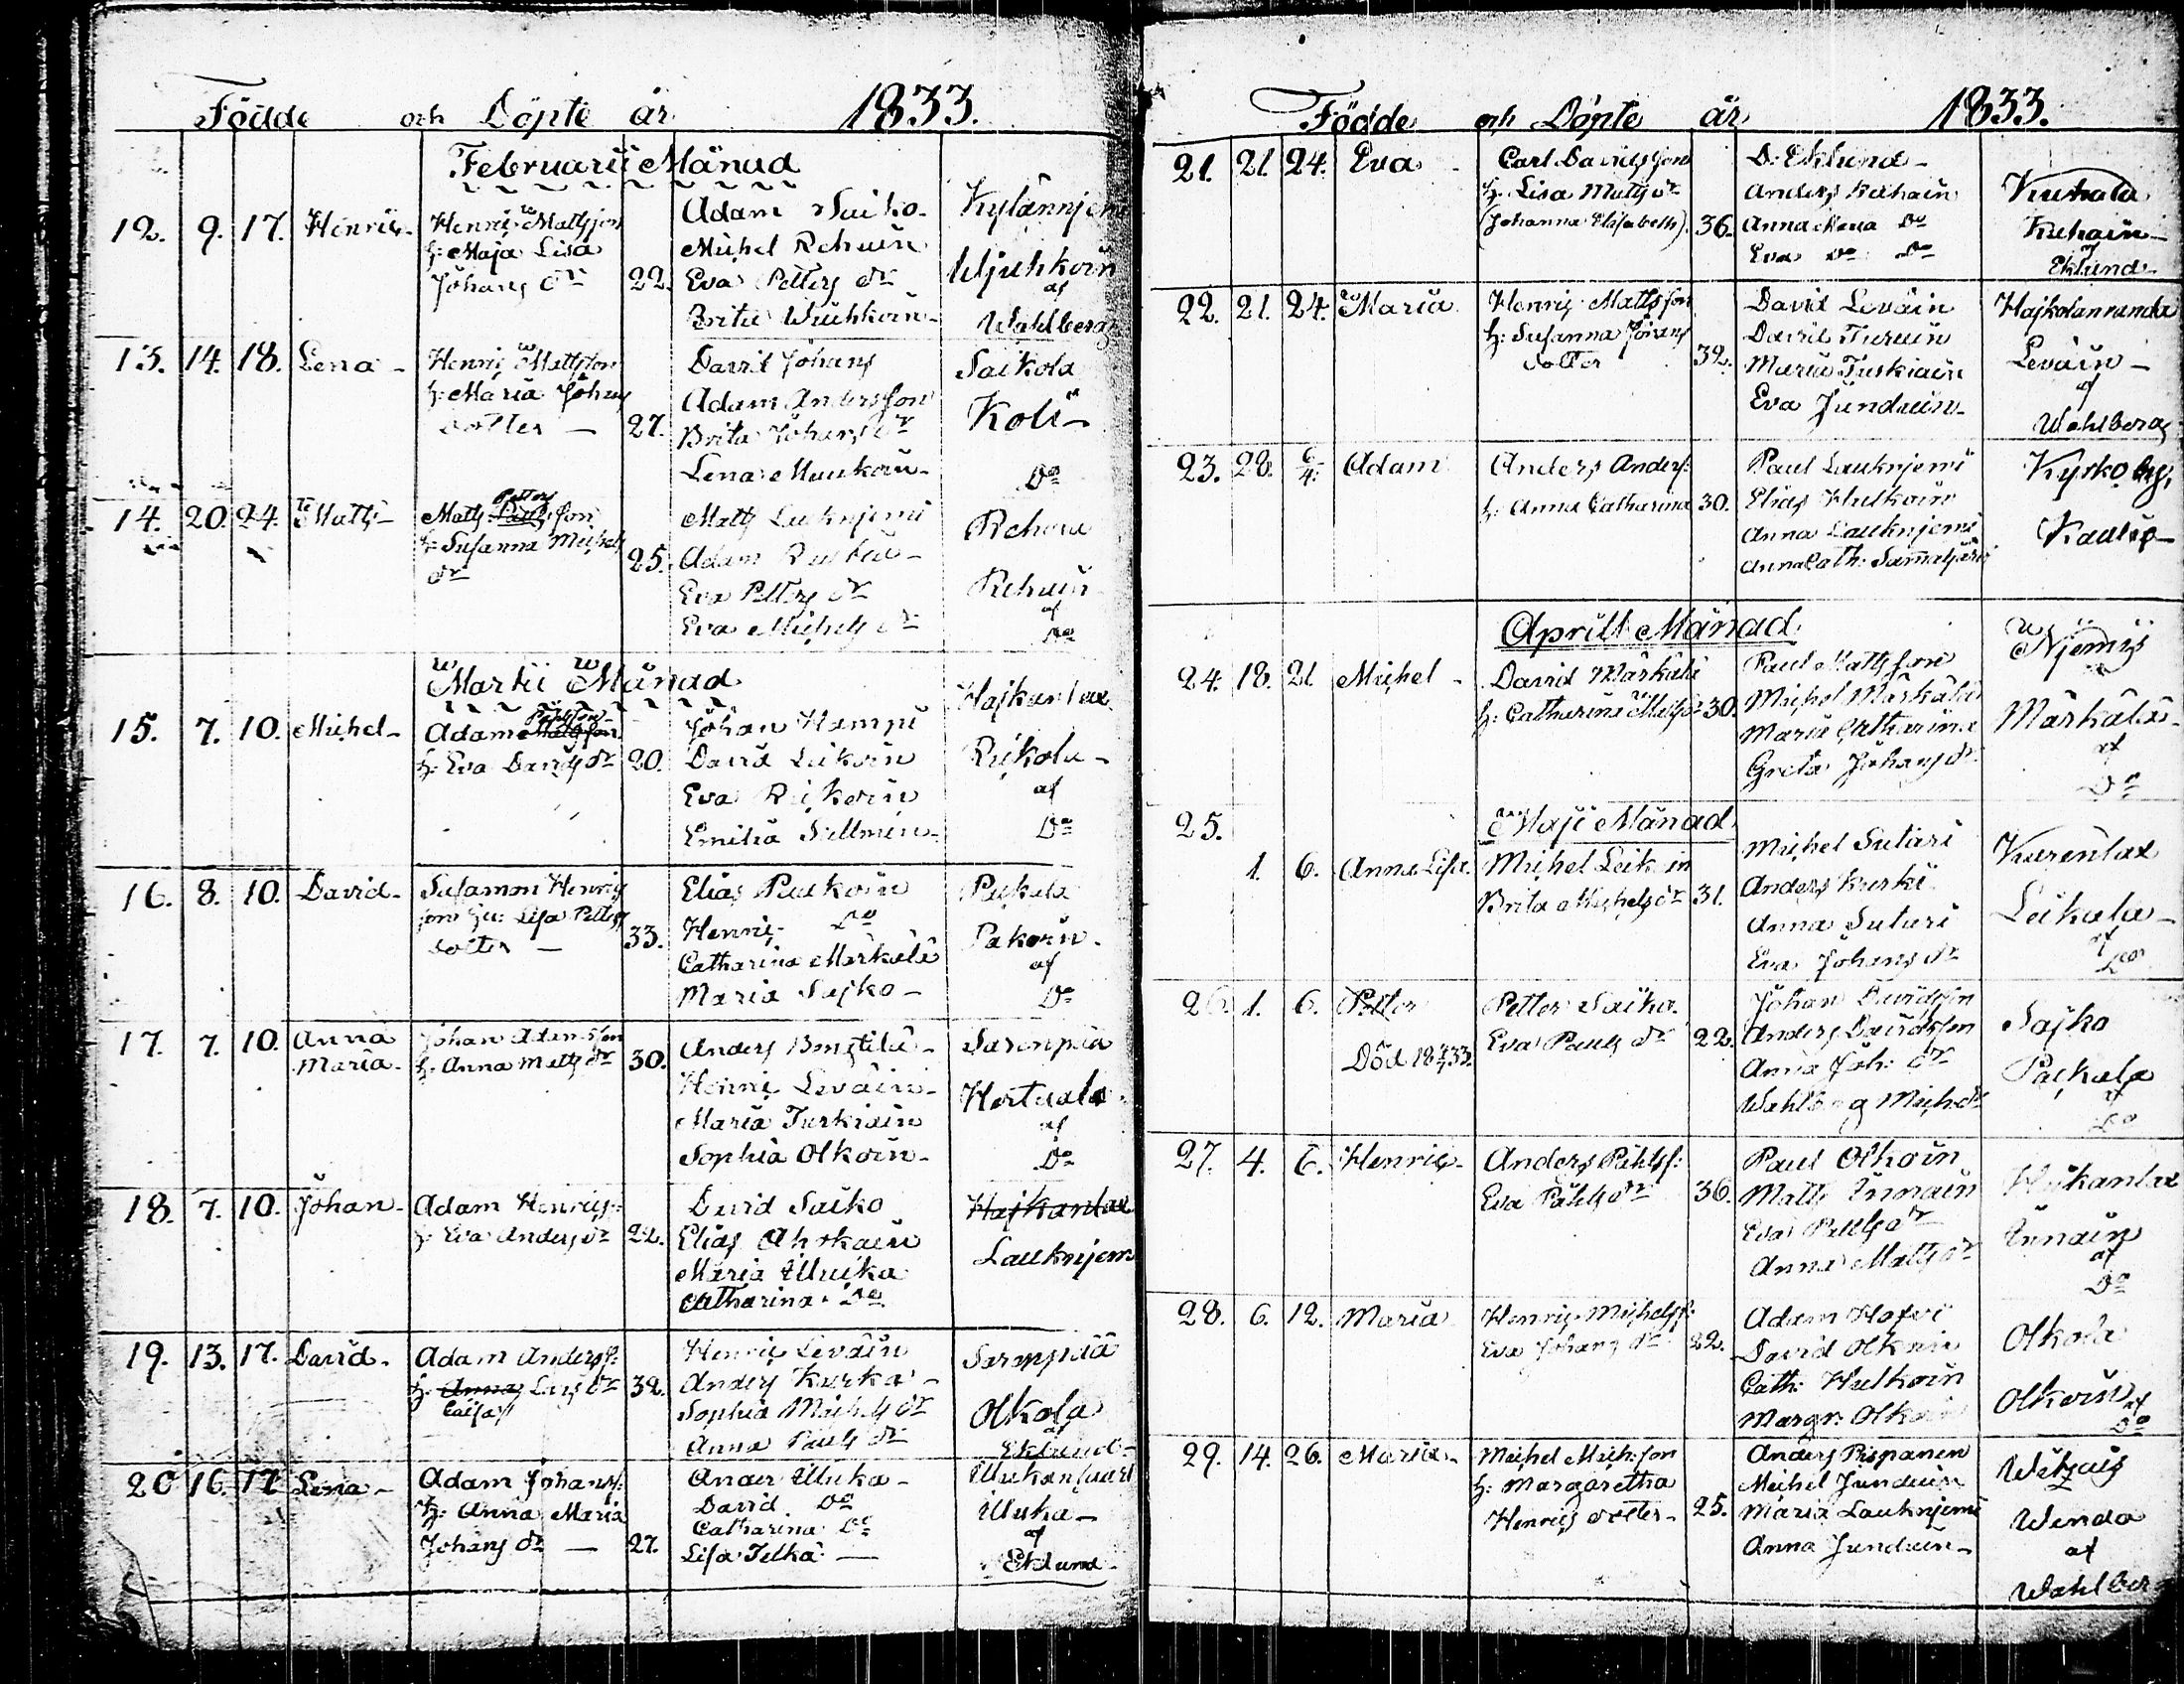 Födde och Döpte år 1833.
Februarii Månad
12. 9. 17. Henric
Henric Mattsson
h: Maja Lisa
Johans dr 22.
Adam Saiko
Michel Rehuin
Eva Petters dr
Brita
Kylännjemi
af
Wahlberg
13. 14. 18. Lena
Henric Mattsson
h: Maria Johans
dotter 27.
David Johans
Adam Andersson
Brita Johans dr
Lena Muukoin
Saikola
Koli
Do
14. 20. 24. Matts
Matts Petters son
h: Susanna Michels
dr 25.
Matts Lauknjemi
Adam
Eva Petters dr
Eva Michels dr
Rehula
Rehuin
af
Do
Martii Månad
15. 7. 10. Michel
Adam
h: Eva Davids dr 20.
Johan Hampi
David Leikoin
Eva Rickoin
Emilia Sellmin
Hajkanlax
Rickola
af
Do
16. 8. 10. David
Salamon Henrics
son hu: Lisa Petters
dotter 33.
Elias Paukoin
Henric Do
Catharina Märkälä
Maria Sajko
Packala
Pakoin
af
Do
17. 7. 10. Anna
Maria
Johan Adamsson
h: Anna Matts dr 30.
Anders
Henric Leväin
Maria Turkiain
Sophia Olkoin
Sarenpää
Hertuala
af
Do
18. 7. 10. Johan
Adam Henrics:
h: Eva Anders dr 22.
David Saiko
Elias Ahokain
Maria Uluika
Catharina Do
Hajkanlax
Lauknjemi
19. 13. 17. David
Adam Anderss:
h: Anna Lars dr 32.
Caisa
Henric Leväin
Anders Kurka
Sophia Michels dr
Anna Pauls dr
Sarenpää
Olkola
af
Eklund
20 16. 17. Lena
Adam Johanss:
h: Anna Maria
Johans dr 27.
Ander Uluka
David Do
Catharina Do
Lisa Telkä
Uluka
af
Eklund
Födde och Döpte år 1833.
21. 21. 24. Eva
Carl Davidsson
h: Lisa Matts dr
(Johanna Elisabeth) 36.
D: Eklund
Anders Kuhain
Anna Maria Do
Eva Do Do
Kuhala
Kuhain
af
Eklund
22. 21. 24. Maria
Henric Mattsson
h: Susanna Jörans
dotter 32.
David Leväin
David Turuin
Maria Turkiain
Eva Junduin
Hajkolanranda
Leväin
af
Wahlberg
23. 28. 6/4. Adam
Anders Anders:
h: Anna Catharina 30.
Paul Lauknjemi
Elias Hulkoin
Anna Lauknjemi
Anna Cath:
Kysko by,
April Månad
24. 18. 21. Michel
David Märkälä
h: Catharina Matts dr 30.
Paul Mattsson
Michel Märkälä
Maria Catharina
Greta Johans dr
Njemis
Märkälä
af
Do
25. Maji Månad
1. 6. Anna Lisa
Michel Leikoin
Brita Michels dr 31.
Michel Sutari
Anders Kurki
Anna Sutari
Eva Johans dr
Kuxenlax
Leikala
af
Do
26. 1. 6. Petter
Petter Saiko
Eva Pauls dr 22.
Johan Davidsson
Anders Davidsson
Anna Joh: dr
Wahlberg Mich: dr
Sajko
Packala
af
Do
27. 4. 6. Henric
Anders Påhlss:
Eva Påhls dr 36.
Paul Olkoin
Matts Innain
Eva Petters dr
Anna Matts dr
Hajkanlax
Innain
af
Do
28. 6. 12. Maria
Henric Michelss:
Eva Johans dr 22.
Adam Hofvi
David Olkoin
Cath: Hulkoin
Margr: Olkoin
Olkola
Olkoin
af
Do
29. 14. 26. Maria
Michel Mich: son
h: Margaretha
Henrics dotter 25.
Anders Pispanen
Michel Junduin
Maria Lauknjemi
Anna Junduin
Wenda
af
Wahlber